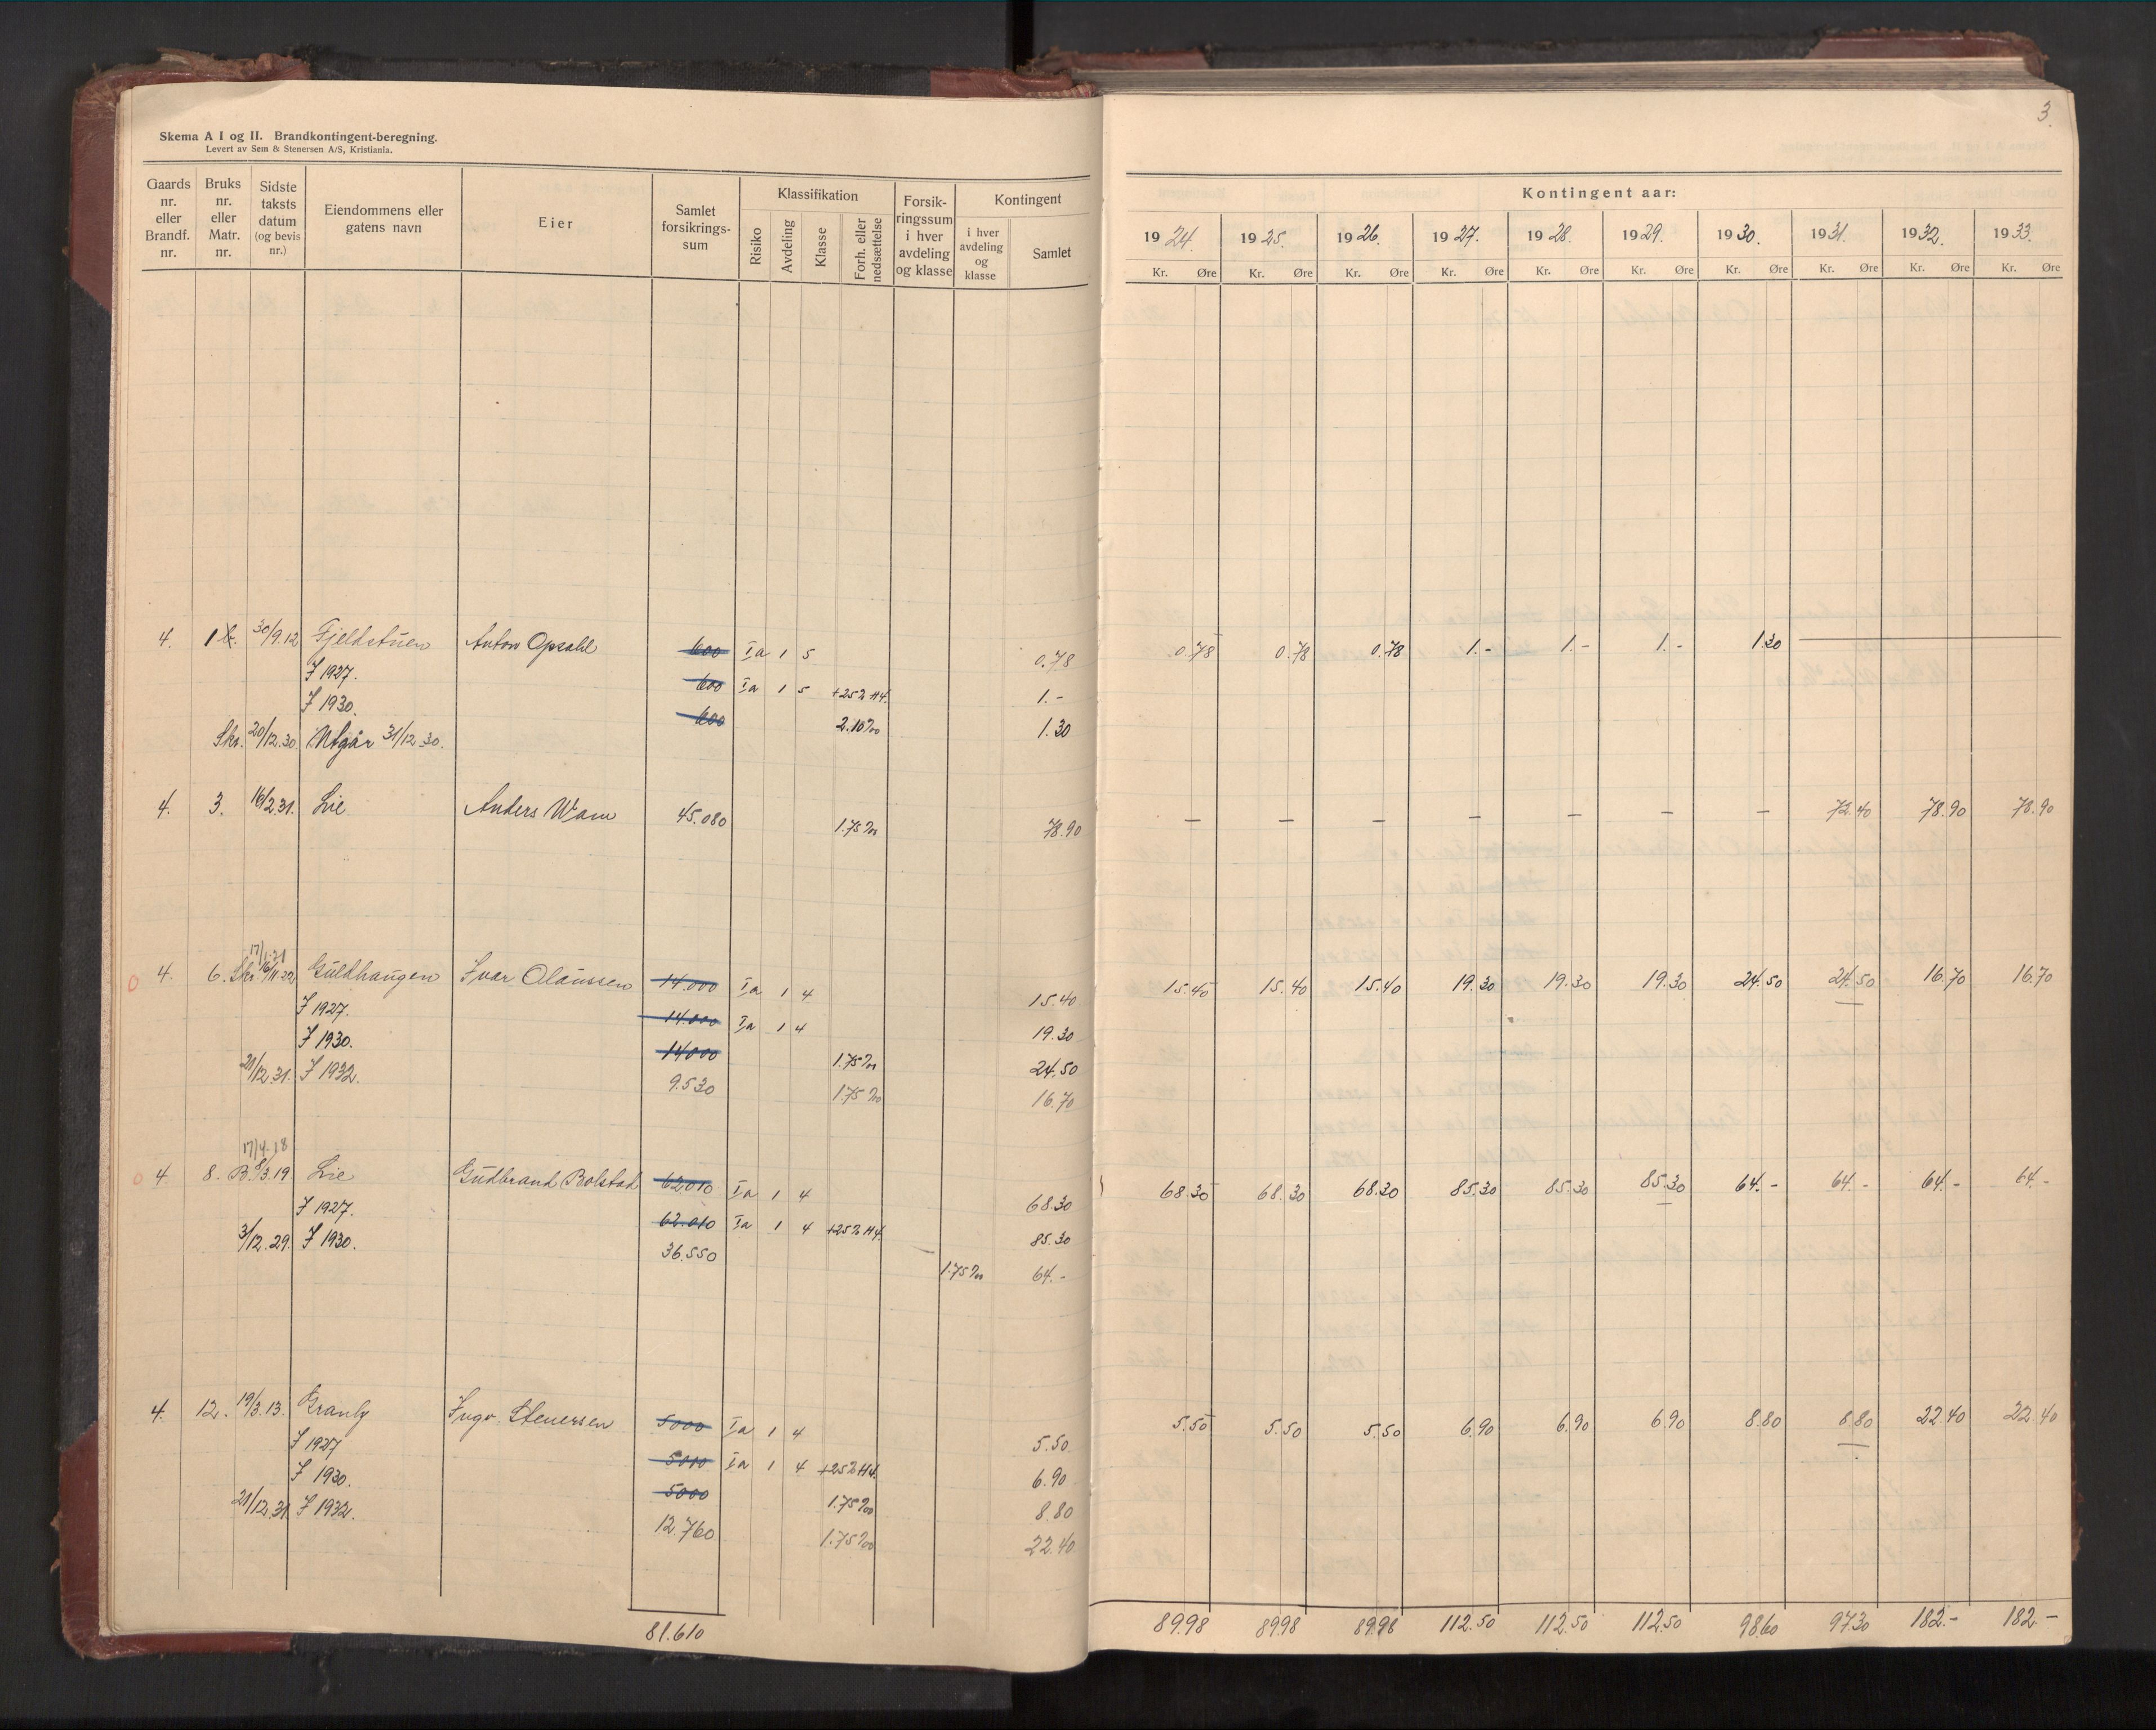 Skema A I og II. Brandkontingent-beregning.
Levert av Sem & Stenersen A/S, Kristiania.
Gaards nr. eller Brandf. nr. | Bruks nr. eller Matr. nr. | Sidste taksts datum (og bevis nr.) | Eiendommens eller gatens navn | Eier | Samlet forsikrings-sum | Klassifikation | Risiko | Avdeling | Klasse | Forh. eller nedsættelse | Forsik-ringssum i hver avdeling og klasse | Kontingent | i hver avdeling og klasse | Samlet
4. 1 30/9.12 Fjeldstuen Anton Opsahl 600 Ia 1 5 0.78
J 1927. 600 Ia 1 5 +25% H4. 1.-
J 1930. 600 2.10‰ 1.30
Skr. 20/12.30. Utgår 31/12 30.
4. 3. 16/2 31. Lie Anders Wam 45.080 1.75‰ 78.90
17/1.21
4. 6. Skr. 16/11.22 Guldhaugen Ivar Olaussen 14.000 Ia 1 4 15.40
J 1927. 14.000 Ia 1 4 19.30
J 1930. 14000 1.75‰ 24.50
21/12.31. J 1932. 9.530 1.75‰ 16.70
17/4.18
4 8. B. 8/3.19 Lie Gudbrand Bolstad 62010 Ia 1 4 68.30
J 1927. 62.010 Ia 1 4 +25% H4. 85.30
3/12.29. J 1930. 36.550 1.75‰ 64.-
4. 12. 19/3.13. Granly Ingv. Stenersen 5000 Ia 1 4 5.50
J 1927 5010 Ia 1 4 +25% H4. 6.90
J 1930. 5000 1.75‰ 8.80
21/12.31. J 1932. 12.760 1.75‰ 22.40
81.610
3.
Kontingent aar:
1924. 1925. 1926. 1927. 1928. 1929. 1930. 1931. 1932. 1933.
Kr. Øre Kr. Øre Kr. Øre Kr. Øre Kr. Øre Kr. Øre Kr. Øre Kr. Øre Kr. Øre Kr. Øre
0.78 0.78 0.78 1.- 1.- 1.- 1.30
– – – – – – – 72.40 78.90 78.90
15.40 15.40 15.40 19.30 19.30 19.30 24.50 24.50 16.70 16.70
68.30 68.30 68.30 85.30 85.30 85.30 64.- 64.- 64.- 64.-
5.50 5.50 5.50 6.90 6.90 6.90 8.80 8.80 22.40 22.40
89.98 89.98 89.98 112.50 112.50 112.50 98.60 97.30 182.- 182.-